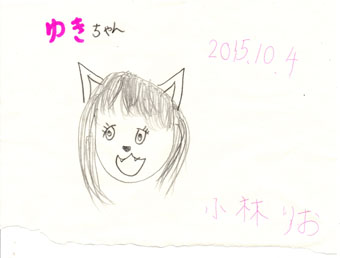 ゆきちゃん
2015.10 4
小林りお